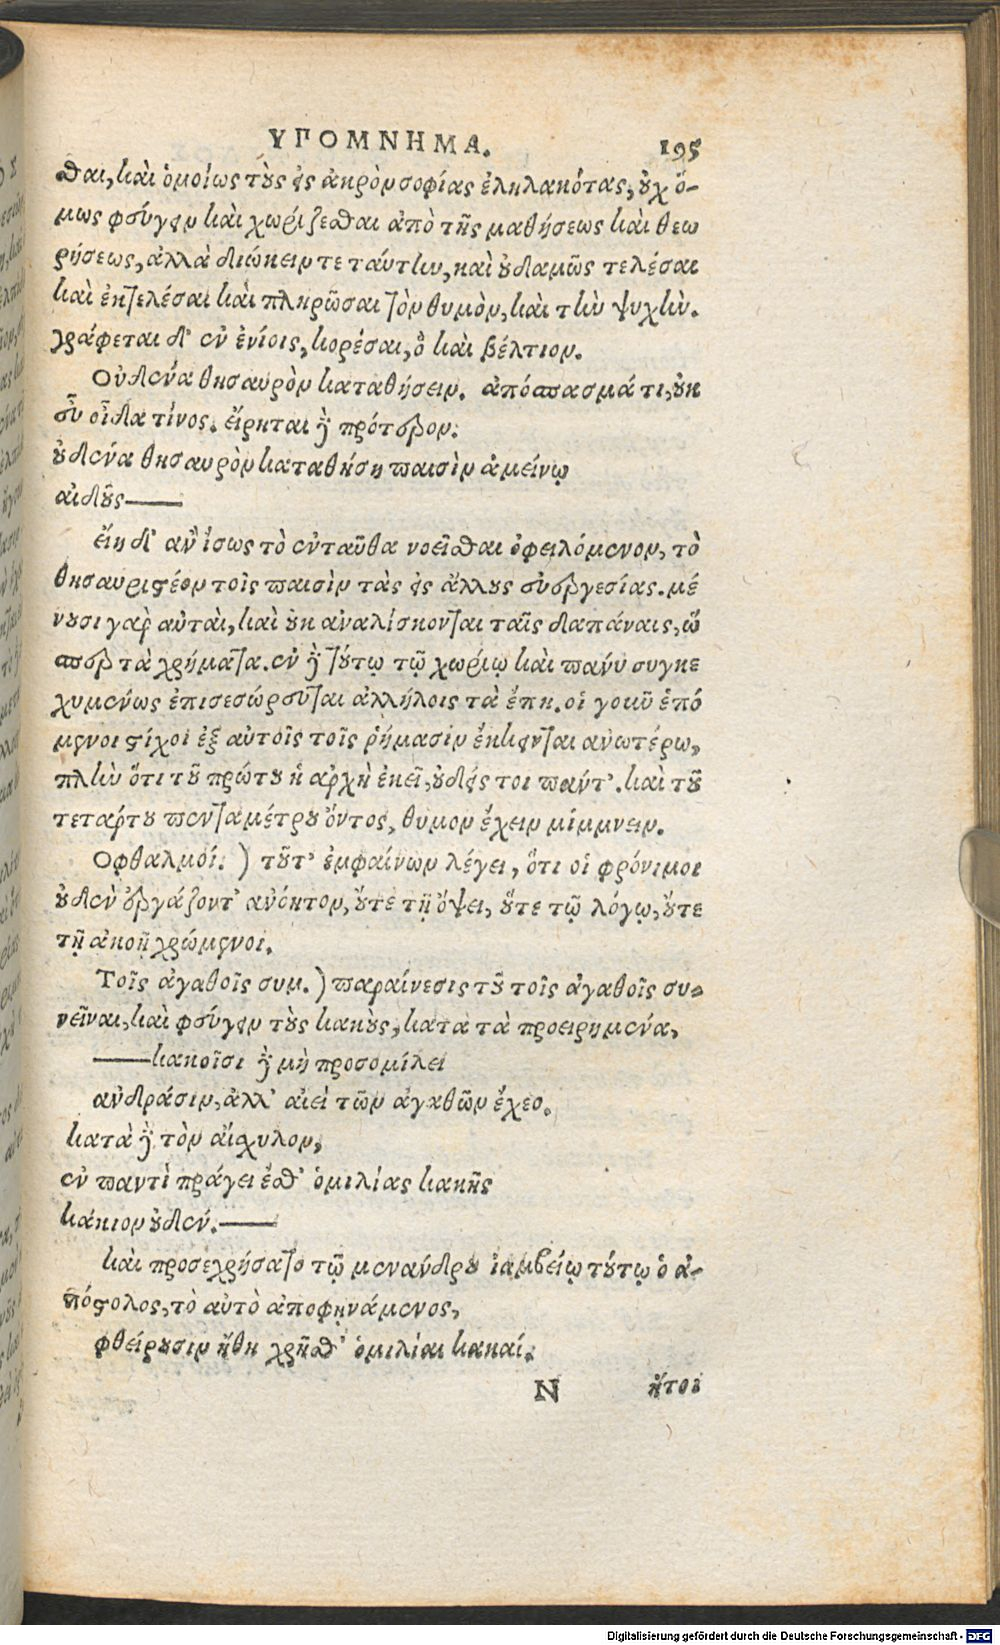 ΥΠΟΜΝΗΜΑ. 195
σθαι, καὶ ὁμοίως τοὺς εἰς ἄκρον σοφίας ἐληλακότας, οὐχ ὅ-
μως φεύγειν καὶ χωρίζεσθαι ἀπὸ τῆς μαθήσεως καὶ θεω
ρήσεως, ἀλλὰ διώκειν τε ταύτην, καὶ οὐδαμῶς τελέσαι
καὶ ἐκτελέσαι καὶ πληρῶσαι τὸν θυμὸν, καὶ τὴν ψυχήν.
γράφεται δ' ἐν ἐνίοις, κορέσαι, ὃ καὶ βέλτιον.
Οὐδένα θησαυρὸν καταθήσειν. ἀπόσπασμά τι, οὐκ
εὖ οἶδα τίνος. εἴρηται γὰρ πρότερον.
οὐδένα θησαυρὸν καταθήσῃ παισὶν ἀμείνω
αἰδοῦς——
εἴη δ' ἂν ἴσως τὸ ἐνταῦθα νοεῖσθαι ὀφειλόμενον, τὸ
θησαυριστέον τοῖς παισὶν τὰς εἰς ἄλλους εὐεργεσίας. μέ
νουσι γὰρ αὐταὶ, καὶ οὐκ ἀναλίσκονται ταῖς δαπάναις, ὥ
σπερ τὰ χρήματα. ἐν γὰρ τούτῳ τῷ χωρίῳ καὶ πάνυ συγκε
χυμένως ἐπισεσώρευται ἀλλήλοις τὰ ἔπη. οἱ γοῦν ἑπό
μενοι στίχοι ἐξ αὐτοῖς τοῖς ῥήμασιν ἔκκεινται ἀνωτέρω,
πλὴν ὅτι τοῦ πρώτου ἡ ἀρχὴ ἐκεῖ, οὐδείς τοι πάντ'. καὶ τοῦ
τετάρτου πενταμέτρου ὄντος, θυμὸν ἔχειν μίμνειν.
Οφθαλμοί.) τοῦτ' ἐμφαίνων λέγει, ὅτι οἱ φρόνιμοι
οὐδὲν ἐργάζοντ' ἀνόητον, οὔτε τῇ ὄψει, οὔτε τῷ λόγῳ, οὔτε
τῇ ἀκοῇ χρώμενοι.
Τοῖς ἀγαθοῖς συμ.) παραίνεσις τοῦ τοῖς ἀγαθοῖς συ-
νεῖναι, καὶ φεύγειν τοὺς κακοὺς, κατὰ τὰ προειρημένα,
——κακοῖσι γὰρ μὴ προσομίλει
ἀνδράσιν, ἀλλ' αἰεὶ τῶν ἀγαθῶν ἔχεο.
κατὰ γὰρ τὸν αἴσχυλον,
ἐν παντὶ πράγει ἔσθ' ὁμιλίας κακῆς
κάκιον οὐδέν.——
καὶ προσεχρήσατο τῷ μενάνδρου ἰαμβείῳ τούτῳ ὁ ἀ-
πόστολος, τὸ αὐτὸ ἀποφηνάμενος,
φθείρουσιν ἤθη χρῆσθ' ὁμιλίαι κακαί.
N ἤτοι
Digitalisierung gefördert durch die Deutsche Forschungsgemeinschaft - DFG